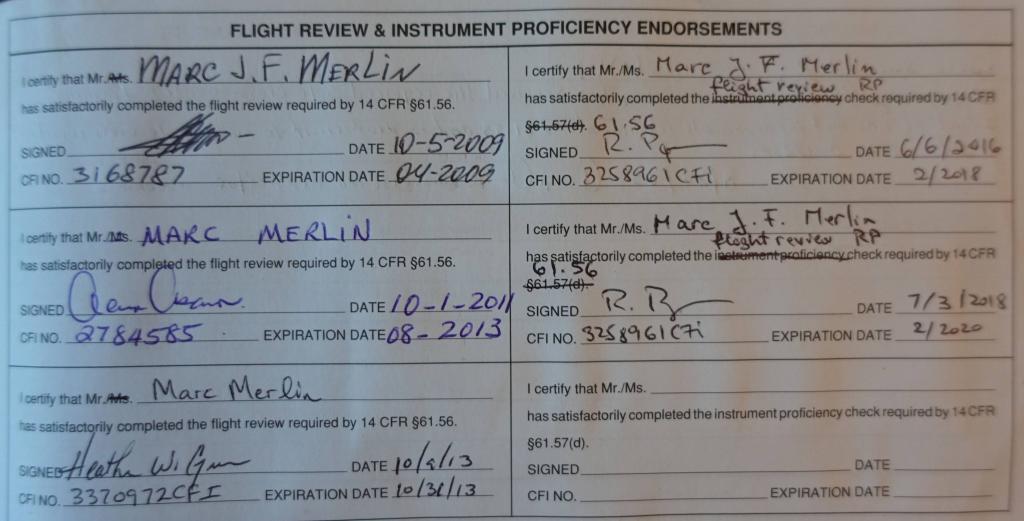 FLIGHT REVIEW & INSTRUMENT PROFICIENCY ENDORSEMENTS
I certify that Mr./Ms. MARC J.F. MERLIN
has satisfactorily completed the flight review required by 14 CFR §61.56.
SIGNED DATE 10-5-2009
CFI NO. 3168787 EXPIRATION DATE 04-2009
I certify that Mr./Ms. MARC MERLIN
has satisfactorily completed the flight review required by 14 CFR §61.56.
SIGNED DATE 10-1-2011
CFI NO. 2784585 EXPIRATION DATE 08-2013
I certify that Mr./Ms. Marc Merlin
has satisfactorily completed the flight review required by 14 CFR §61.56.
SIGNED Heather W. DATE 10/9/13
CFI NO. 3370972CFI EXPIRATION DATE 10/31/13
I certify that Mr./Ms. Marc J. F. Merlin
flight review RP
has satisfactorily completed the instrument proficiency check required by 14 CFR
§61.57(d). 61.56
SIGNED R. DATE 6/6/2016
CFI NO. 3258961CFi EXPIRATION DATE 2/2018
I certify that Mr./Ms. Marc J. F. Merlin
flight review RP
has satisfactorily completed the instrument proficiency check required by 14 CFR
61.56
§61.57(d).
SIGNED R. DATE 7/3/2018
CFI NO. 3258961CFi EXPIRATION DATE 2/2020
I certify that Mr./Ms.
has satisfactorily completed the instrument proficiency check required by 14 CFR
§61.57(d).
SIGNED DATE
CFI NO. EXPIRATION DATE